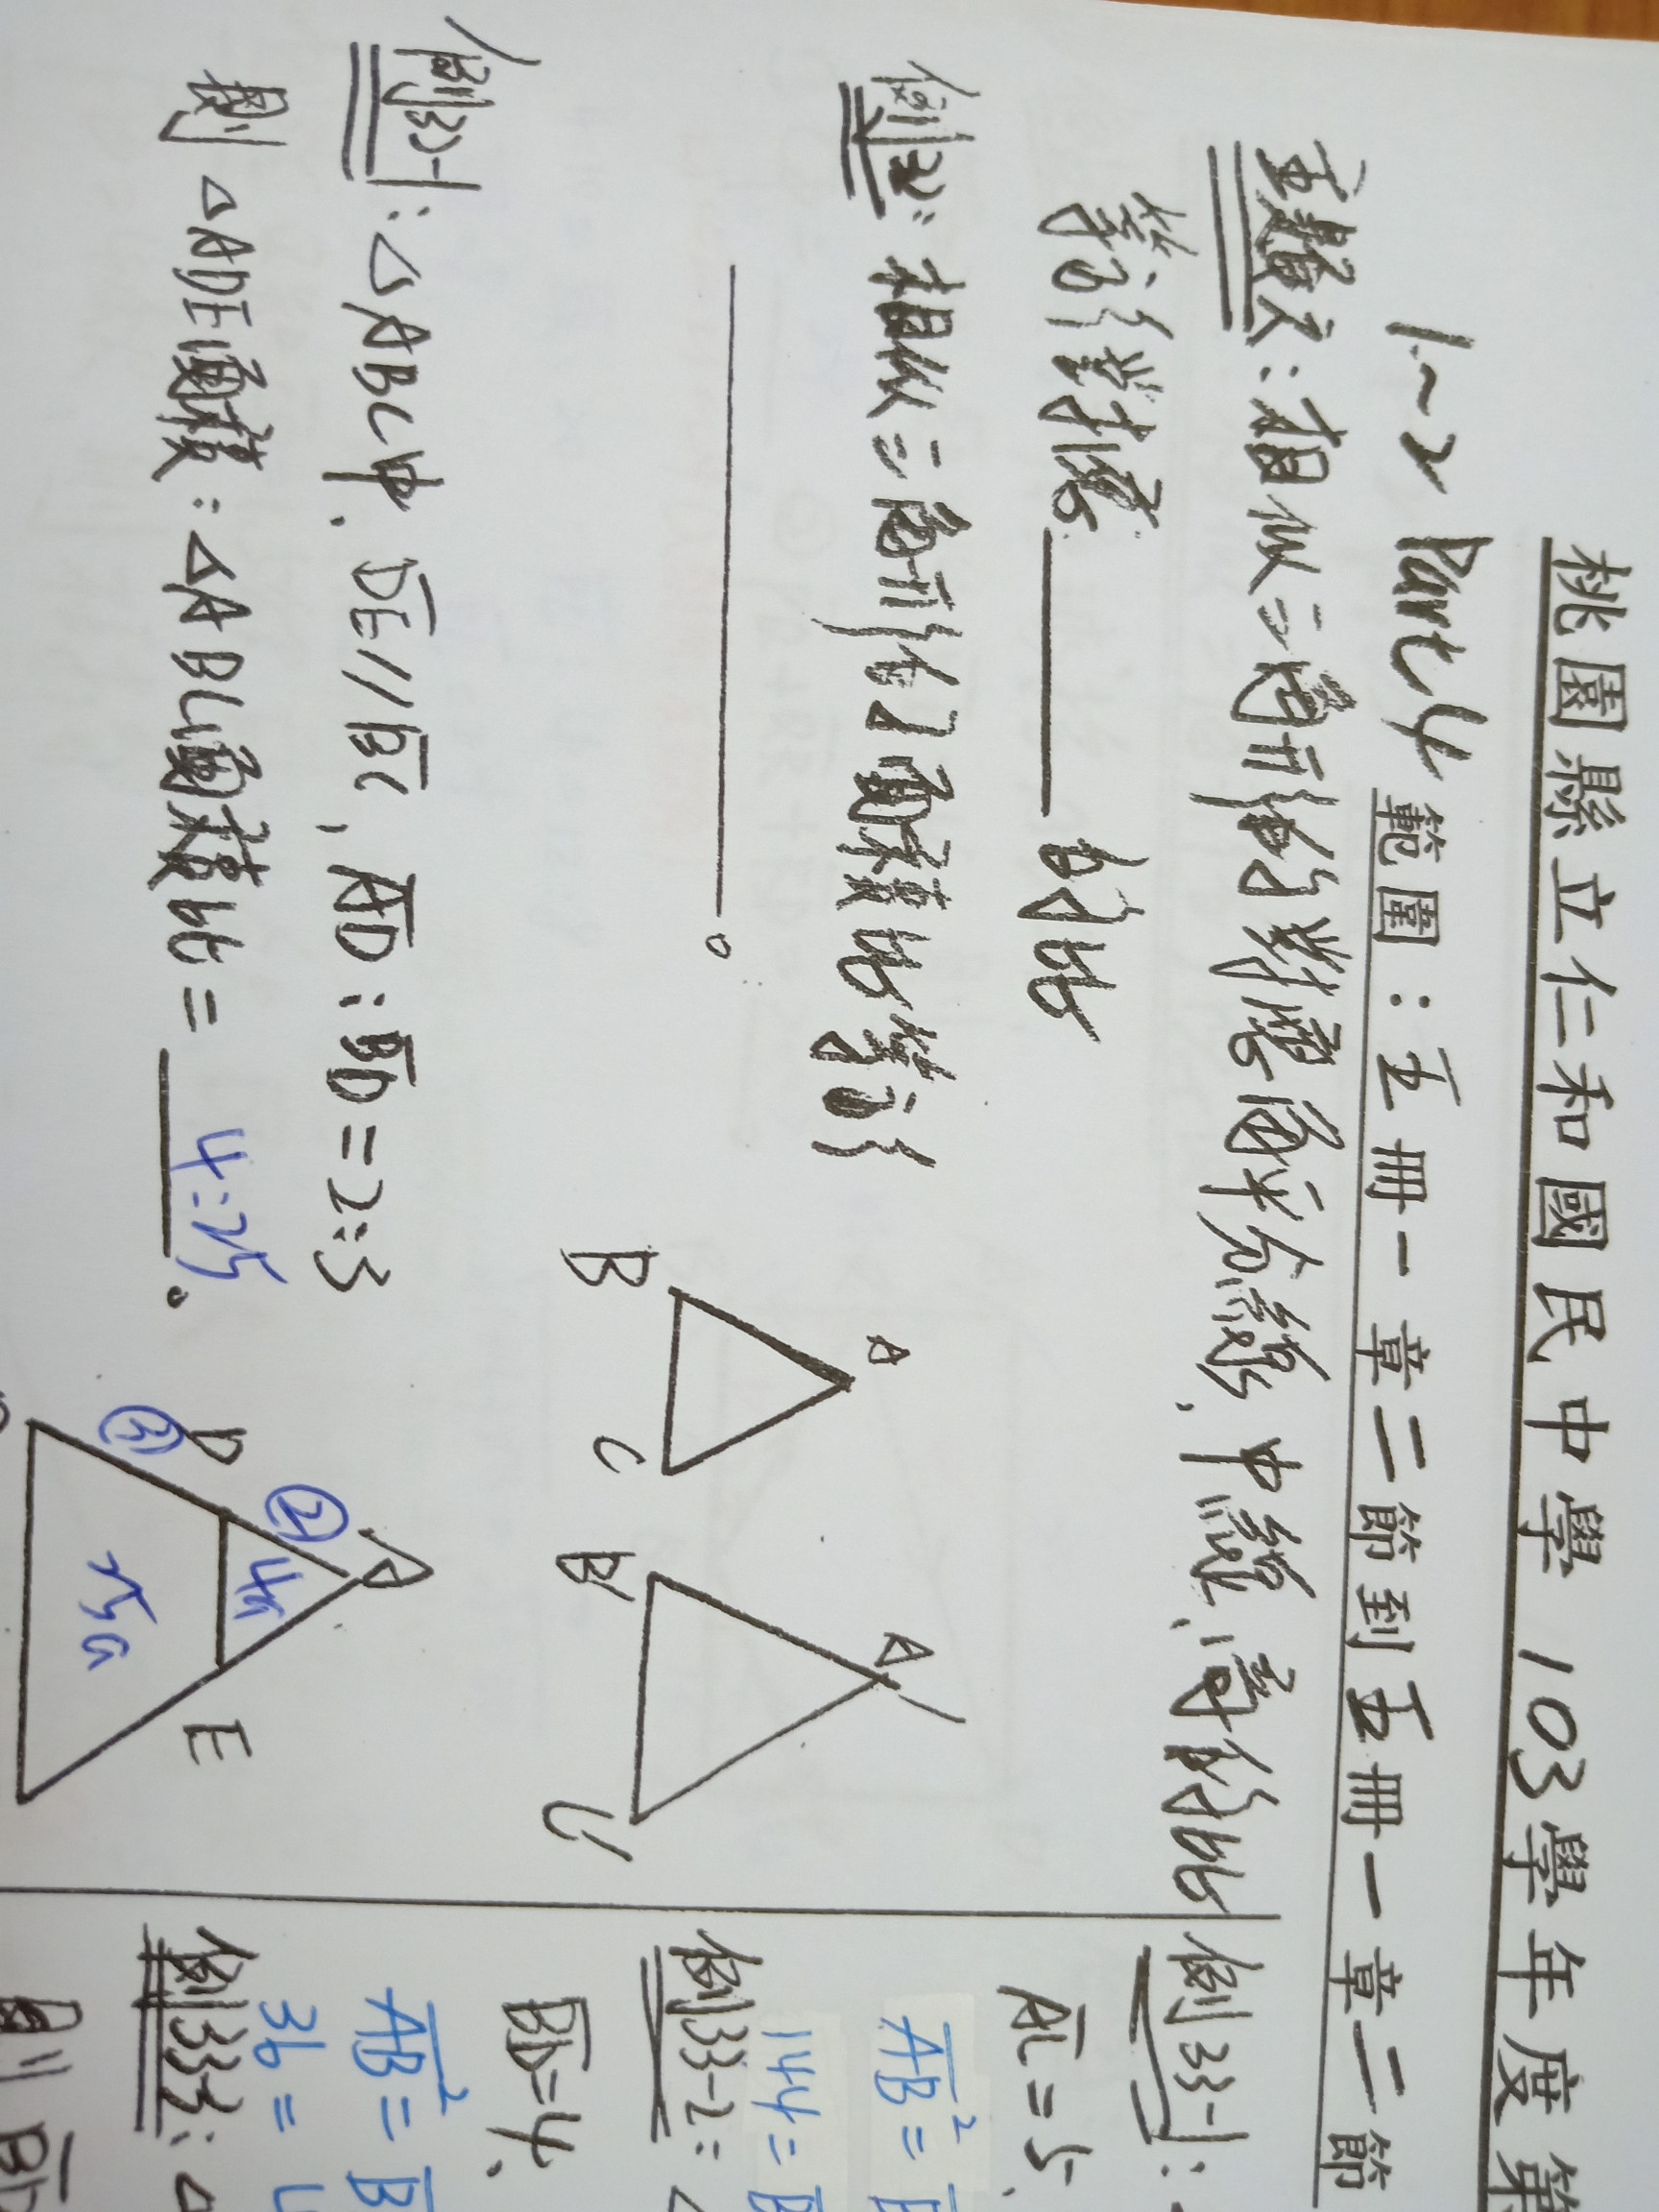 桃園縣立仁和國民中學 103學年度第
1-2 Part4 範圍:五冊一章二節到五冊一章二節
主題六:相似三角形的對應角平分線、中線、高的比
等於對應______的比
例32:相似三角形的面積比等於
______。
A
B
C
A'
B'
C'
例32-1:△ABC中、DE//BC,AD:BD=2:3
則△ADE面積:△ABC面積比=4:25。
A
② 4a
D
E
③ 25a
例33-1:
AC=5、
AB²=
144=
例33-2:
BD=4、
AB²=B
36=4
例33-3:△
則BD